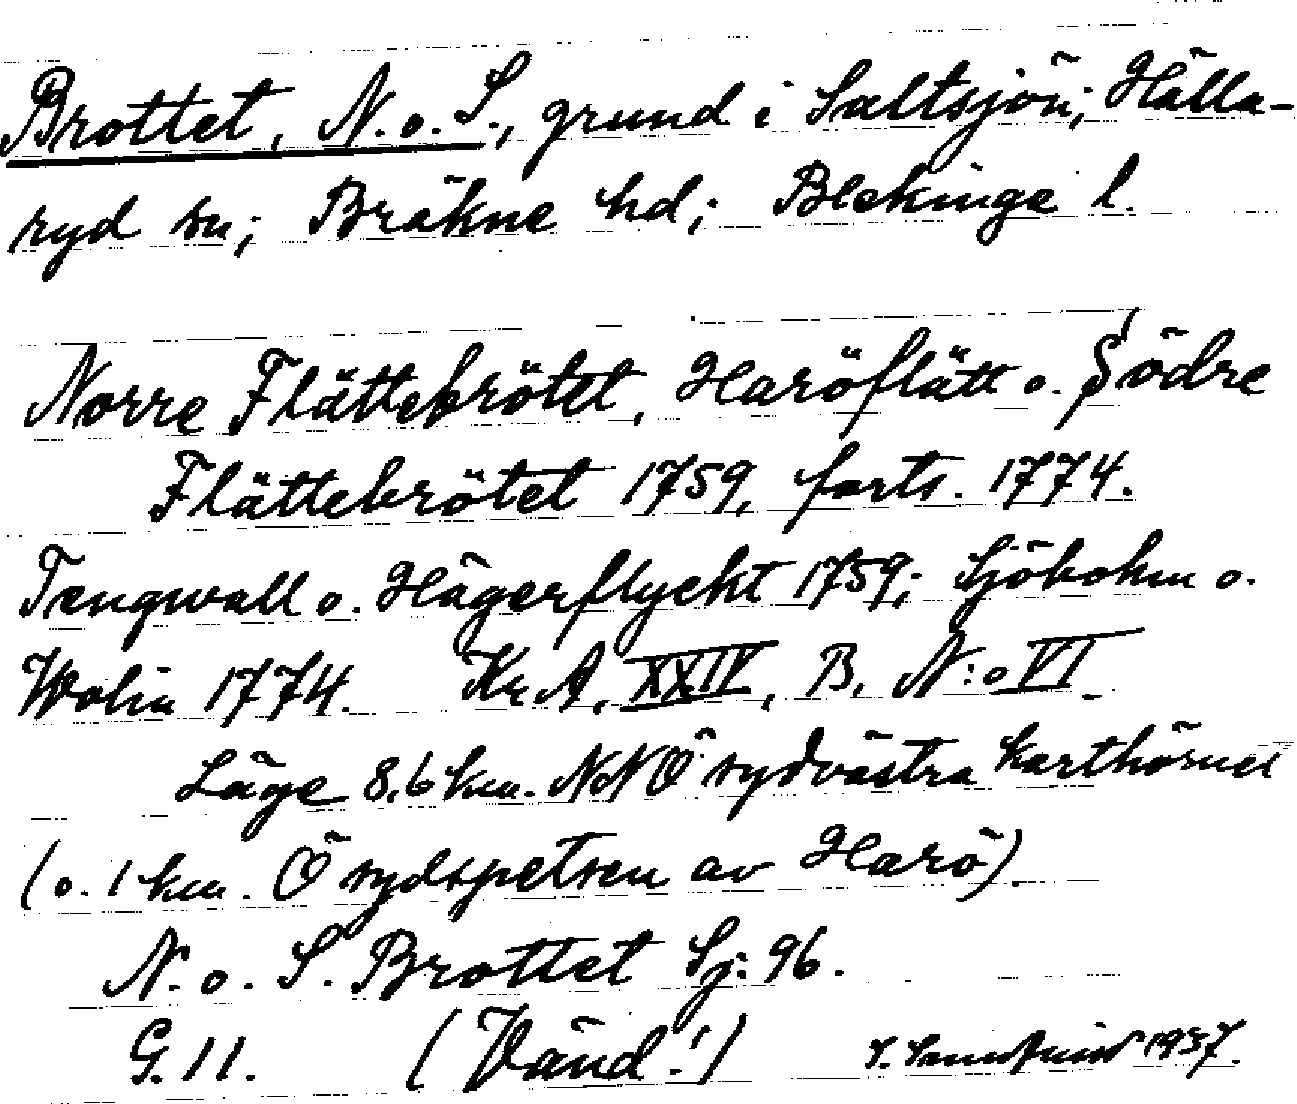 Brottet, N. o. S., grund i Saltsjön; Hälla-
ryd sn; Bräkne hd; Blekinge l.
Norre Flättebrötet, Haröflätt o. Södre
Flättebrötet 1759, forts. 1774.
Tengwall o. Hägerflyckt 1759; Sjöbohm o.
Wolin 1774. Kr.A. XXIV, B, N:o VI
Läge 8,6 km. NNÖ sydvästra karthörnet
(o. 1 km. Ö sydspetsen av Harö).
N. o. S. Brottet Sj: 96.
G. 11. (Vänd!) 1937.